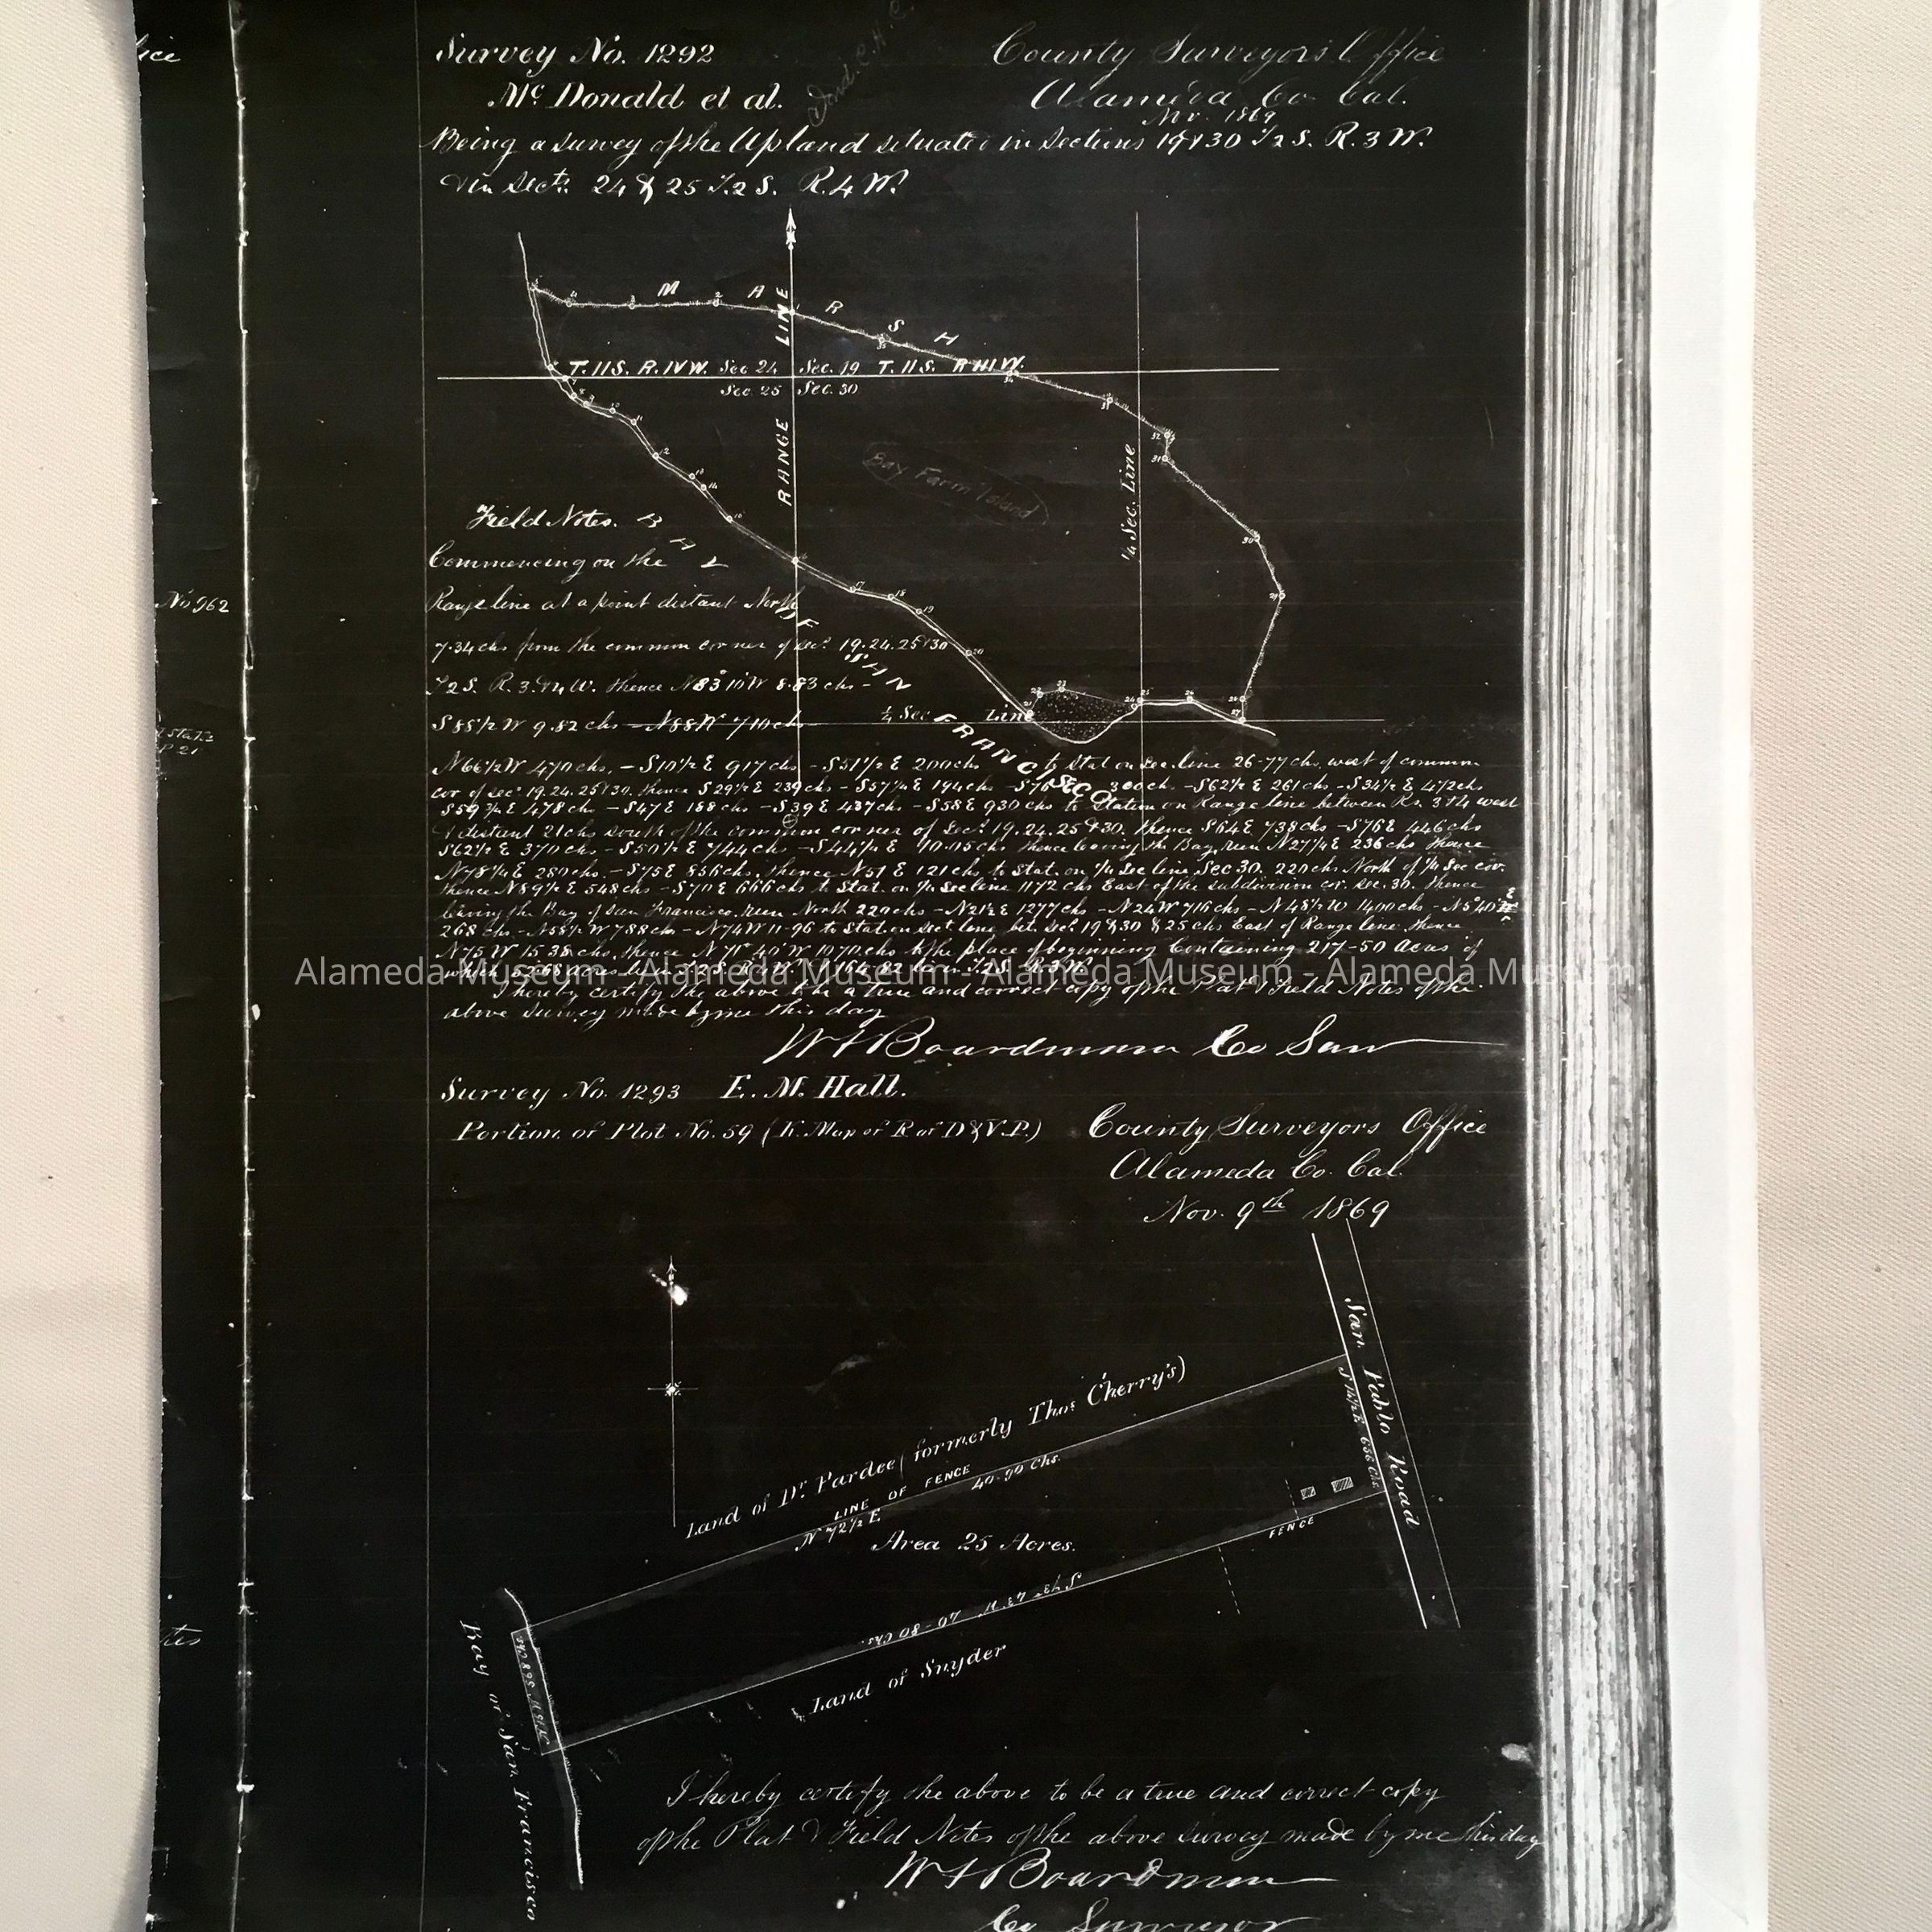 Survey No. 1292
County Surveyors Office
Mc Donald et al.
Alameda Co Cal.
Nov. 1869
Being a survey of the Upland situated in sections 19 & 30 T. 2 S. R. 3 W.
& in Sects. 24 & 25 T. 2 S. R. 4 W.
MARSH
RANGE LINE
T. II S. R. IV W. Sec 24 Sec. 19 T. II S. R III W.
Sec. 25 Sec. 30
Bay Farm Island
1/4 Sec. Line
BAY OF SAN FRANCISCO
1/4 Sec Line
Field Notes.
Commencing on the
Range line at a point distant North
7.34 chs from the common corner of Secs. 19. 24. 25 & 30
T 2 S. R. 3. & 4 W. thence N 83° 10' W 8.83 chs -
S 85 1/2 W 9.82 chs - N 88 W 710 chs
N 66 1/2 W 470 chs. - S 10 1/2 E 917 chs - S 51 1/2 E 200 chs to Stat on Sec. line 26-77 chs. west of common
cor of secs 19. 24. 25 & 30. thence S 29 1/2 E 239 chs - S 57 1/4 E 194 chs - S 76 300 ch - S 62 1/2 E 261 chs - S 34 1/2 E 472 chs
S 59 3/4 E 478 ch - S 47 E 188 chs - S 39 E 437 chs - S 58 E 930 chs to Station on Range line between Rs. 3 & 4 west
& distant 21 chs south of the common corner of Secs. 19. 24. 25 & 30. thence S 64 E 738 chs - S 76 E 446 chs
S 62 1/2 E 370 chs - S 50 1/2 E 744 chs - S 44 1/2 E 10.05 chs thence leaving the Bay, run N 27 1/4 E 236 chs thence
N 78 1/4 E 280 chs. - S 75 E 856 chs. thence N 51 E 121 chs to Stat. on 1/4 Sec line, Sec 30. 220 chs North of 1/4 Sec cor.
thence N 89 1/2 E 548 chs - S 70 E 666 chs to Stat. on 1/4 Sec line 1172 chs East of the subdivision cor. sec. 30. thence
leaving the Bay of San Francisco, run North 220 chs - N 21 1/2 E 1277 chs - N 24 W 716 chs - N 48 1/2 W 1400 chs - N 5° 40' E
268 chs - N 58 1/2 W 788 chs - N 74 W 11-96 to Stat on sect line bet. Secs 19 & 30 & 25 chs East of Range line thence
N 75 W 15 38 chs, thence N 71° 40' W 1070 chs to the place of beginning Containing 217-50 Acres of
which 52.68 acres T. 2 S. R. 4 W. 164.82 Acres T. 2 S. R. 3 W.
Alameda Museum - Alameda Museum - Alameda Museum - Alameda Museum
I hereby certify the above to be a true and correct copy of the Plat & Field Notes of the
above survey made by me this day
W F Boardman Co Surv
Survey No. 1293 E. M. Hall.
Portion of Plot No. 59 (K. Map of R of D & V. P.)
County Surveyors Office
Alameda Co. Cal.
Nov. 9th 1869
San Pablo Road
Land of Dr. Pardee (formerly Thos Cherry's)
LINE OF FENCE
N 72 1/2 E 40.90 Chs.
Area 25 Acres.
FENCE
S 73° 43' W 40-80 Chs.
Land of Snyder
Bay of San Francisco
I hereby certify the above to be a true and correct copy
of the Plat & Field Notes of the above survey made by me this day
W F Boardman
Co Surveyor
No 962